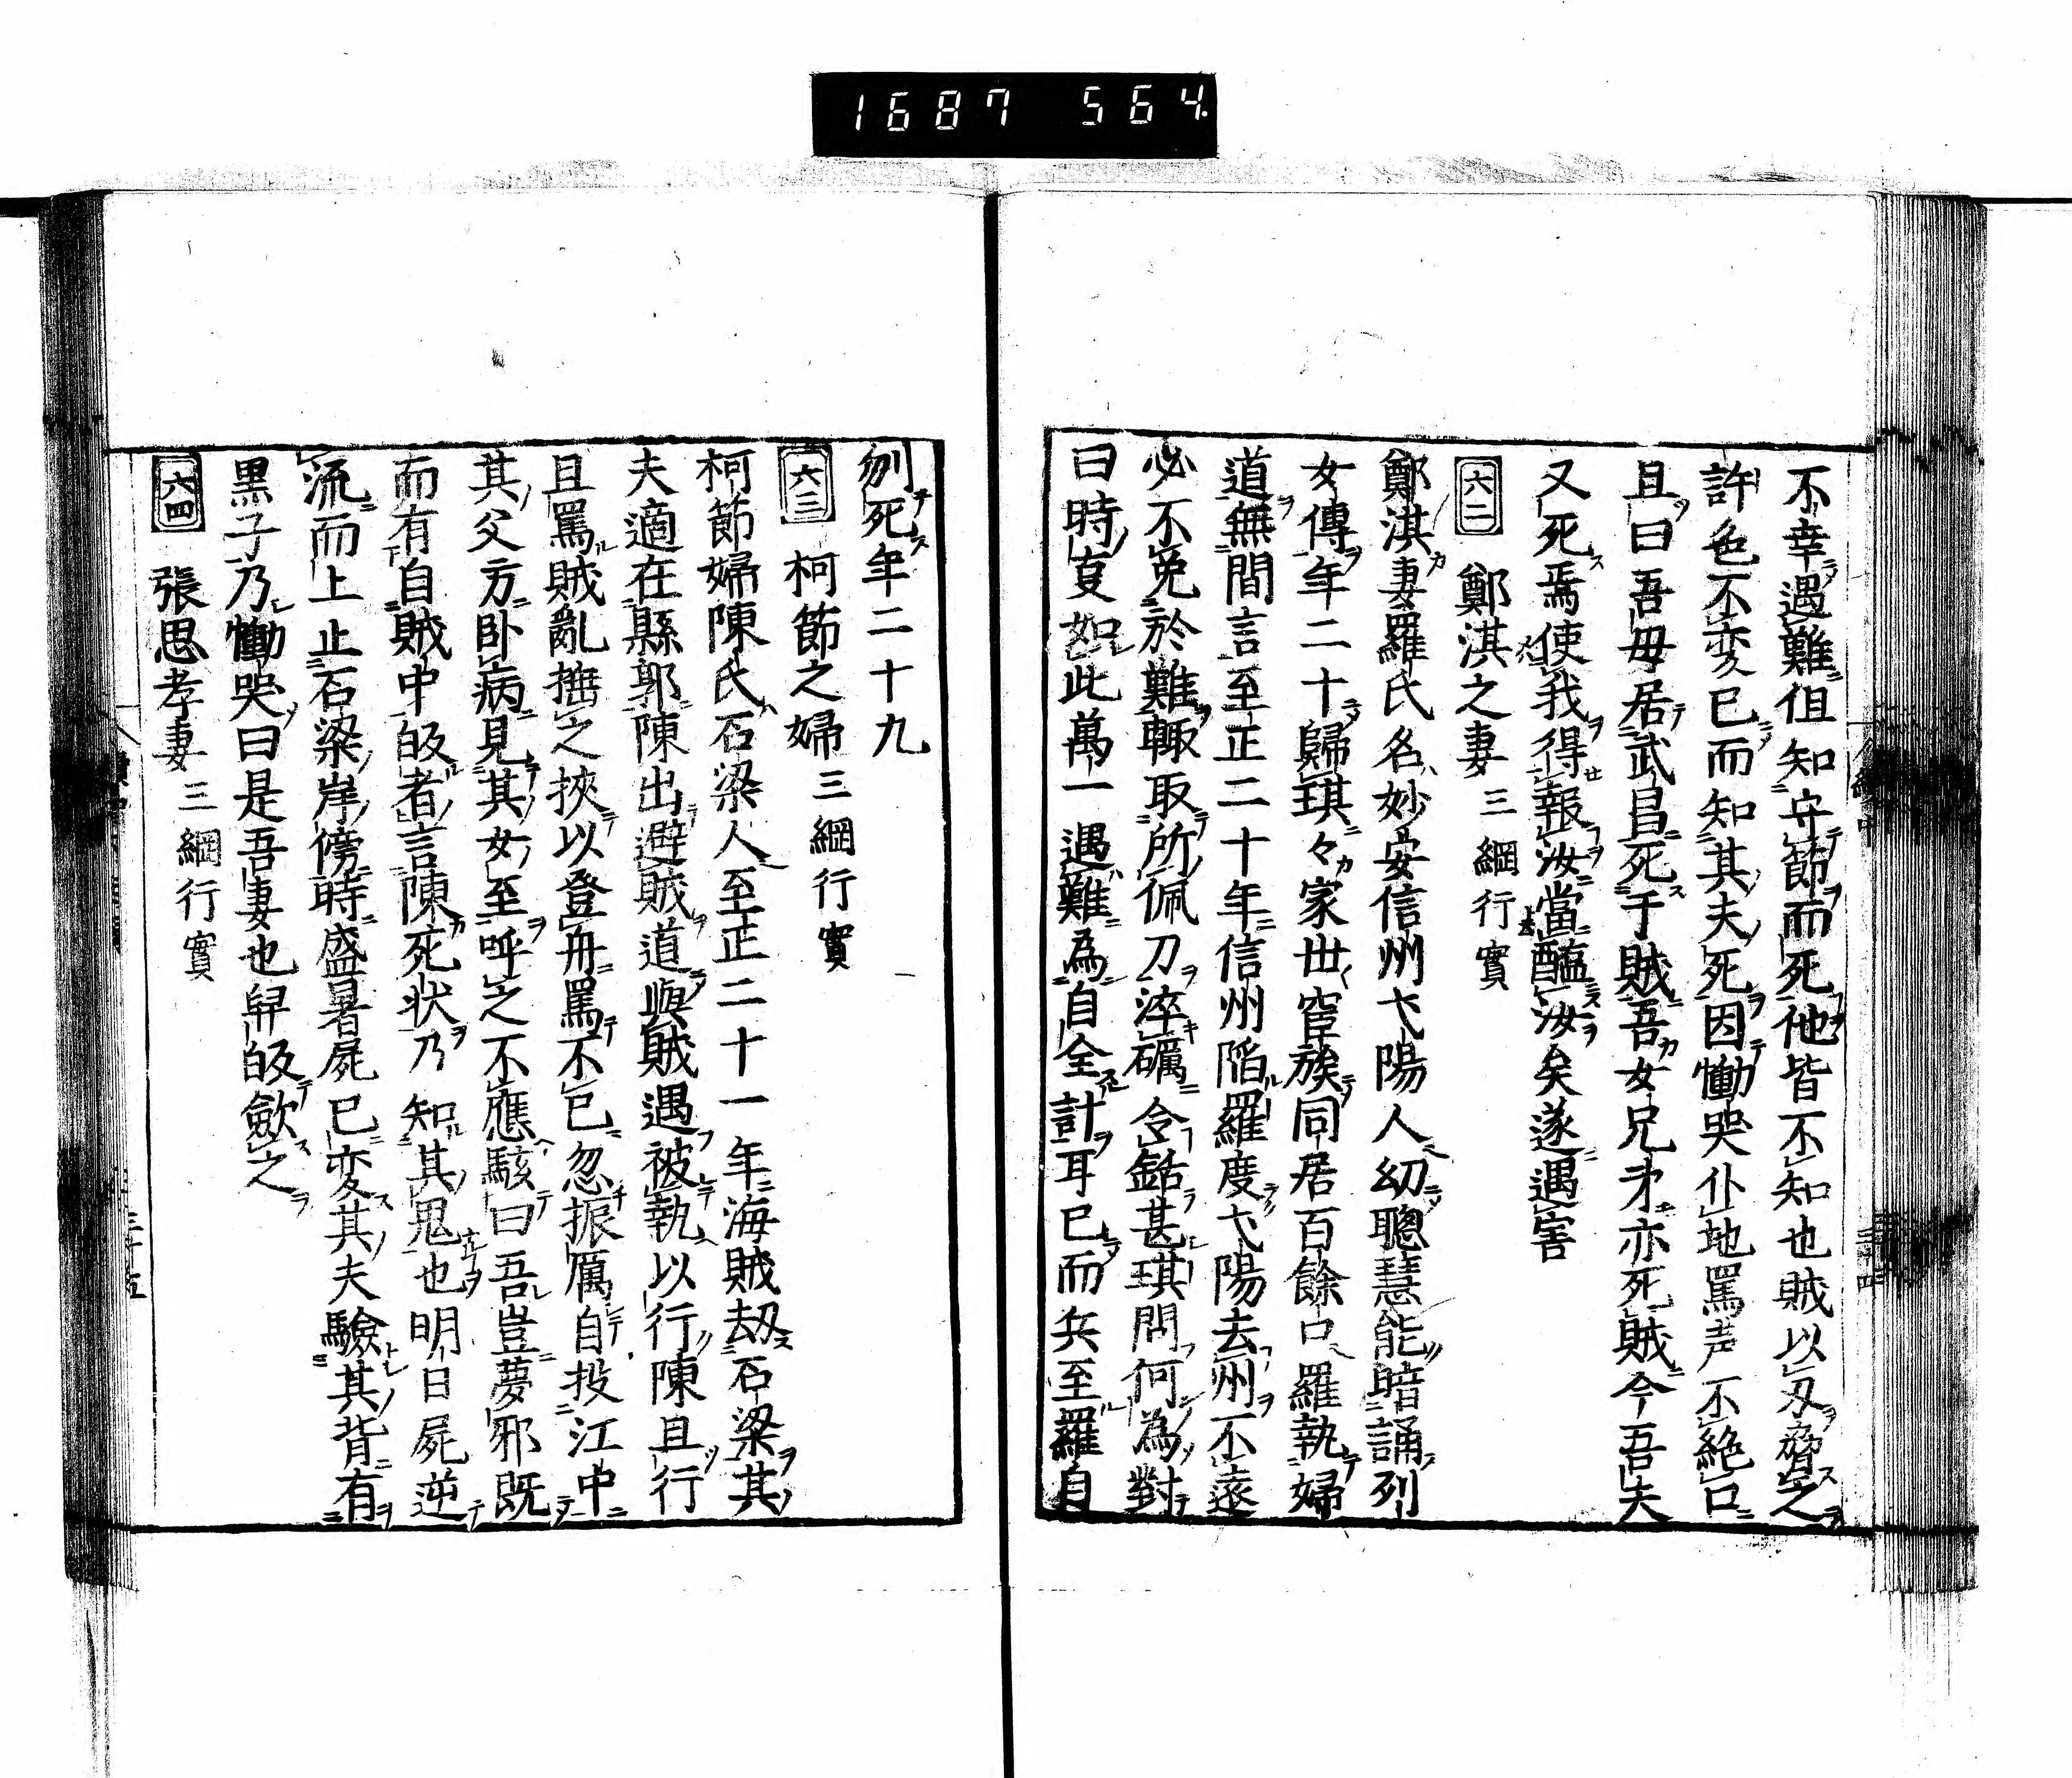 1687 564
不幸遇難但知守節而死他皆不知也賊以刃脅之
許色不変已而知其夫死因慟哭仆地罵声不絶口
且曰吾母居武昌死于賊吾女兄弟亦死賊今吾夫
又死焉使我得報汝當醢汝矣遂遇害
六二 鄭淇之妻 三綱行實
鄭淇妻羅氏名妙安信州弋陽人幼聰慧能暗誦列
女傳年二十歸琪々家世宦族同居百餘口羅執婦
道無間言至正二十年信州陷羅度弋陽去州不遠
必不免於難輙取所佩刀淬礪令銛甚琪問何為對
曰時亰如此萬一遇難為自全計耳已而兵至羅自
刎死年二十九
六三 柯節之婦 三綱行實
柯節婦陳氏石梁人至正二十一年海賊刧石梁其
夫適在縣郭陳出避賊道與賊遇被執以行陳且行
且罵賊亂捶之挾以登舟罵不已忽振厲自投江中
其父方卧病見其女至呼之不應駭曰吾豈夢邪既
而有自賊中皈者言陳死状乃知其鬼也明日屍逆
流而上止石梁岸傍時盛暑屍已変其夫驗其背有
黒子乃慟哭曰是吾妻也舁皈歛之
六四 張思孝妻 三綱行實